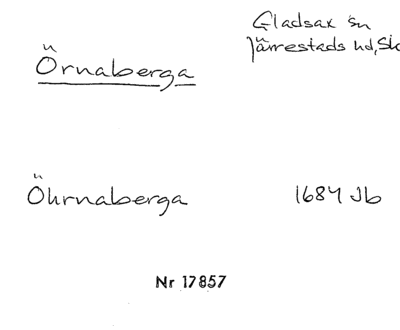 Gladsax sn
Örnaberga
Järrestads hd, Sk
Öhrnaberga 1684 Jb
Nr 17857